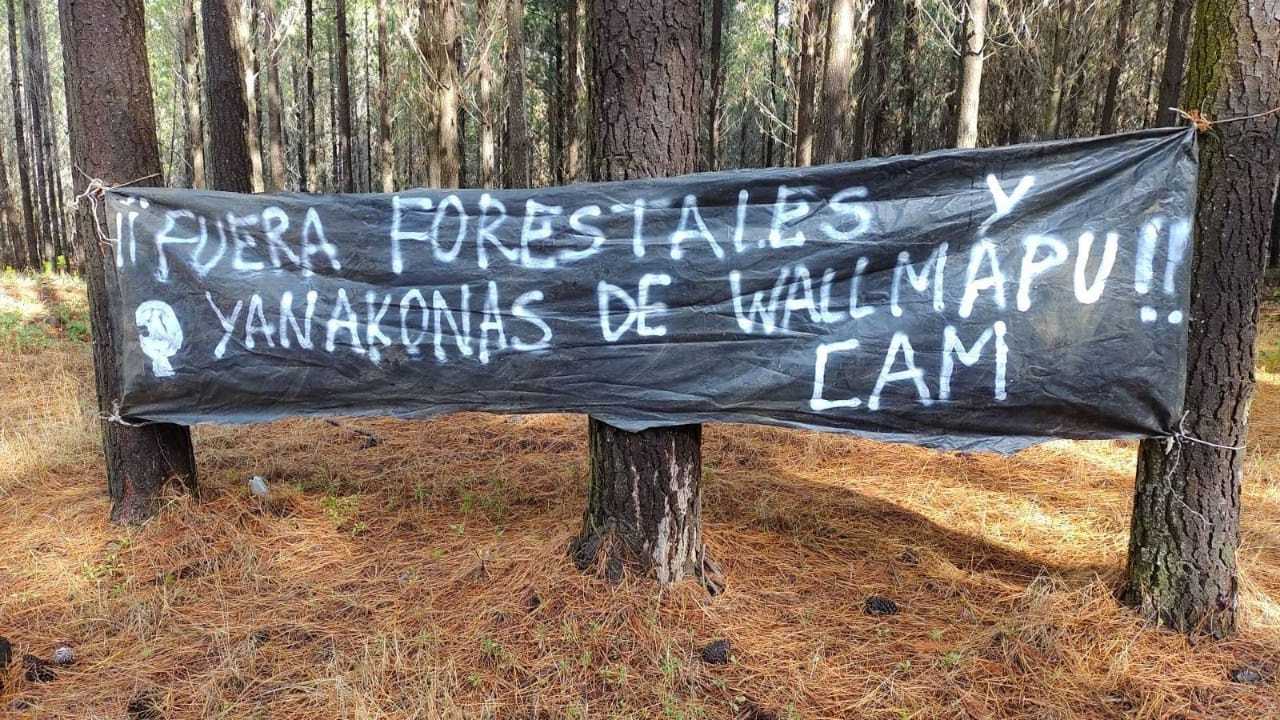 ¡¡FUERA FORESTALES Y
YANAKONAS DE WALLMAPU!!
CAM